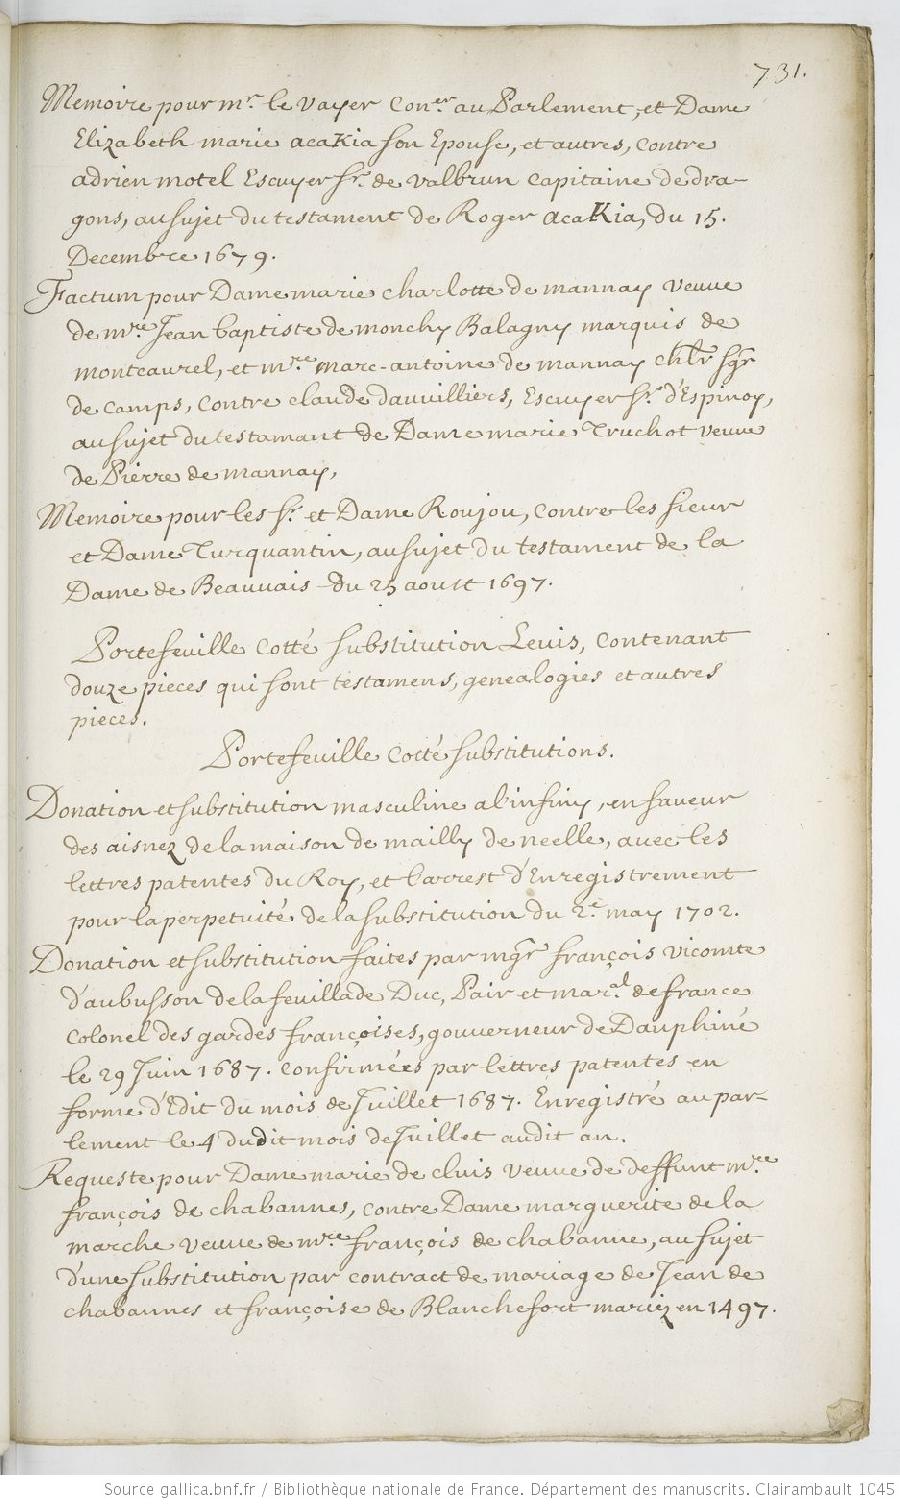 731.
Memoire pour mr. le Vayer Coner. au Parlement, et Dame
Elizabeth marie acakia son Epouse, et autres, contre
adrien motel Escuyer sr. de valbrun capitaine de dra-
gons, au sujet du testament de Roger acakia, du 15.
Decembre 1679.
Factum pour Dame marie charlotte de mannay veuve
de mre. Jean baptiste de monchy Balagny marquis de
montcaurel, et mre. marc-antoine de mannay chlr. sgr.
de camps, contre claude dauvilliers, Escuyer sr. d'Espinoy,
au sujet du testamant de Dame marie Truchot veuve
de Pierre de mannay,
Memoire pour les sr. et Dame Roujou, contre les sieur
et Dame Turquantin, au sujet du testament de la
Dame de Beauvais du 25 aoust 1697.
Portefeuille cotté substitution Levis, contenant
douze pieces qui sont testamens, genealogies et autres
pieces.
Portefeuille cotté substitutions.
Donation et substitution masculine a l'infiny, en faveur
des aisnez de la maison de mailly de neelle, avec les
lettres patentes du Roy, et l'arrest d'Enregistrement
pour la perpetuité de la substitution du 2e. may 1702.
Donation et substitution faites par mgr. françois vicomte
d'aubusson de la feuillade Duc, Pair et maral. de france
colonel des gardes françoises, gouverneur de Dauphiné
le 29 Juin 1687. confirmées par lettres patentes en
forme d'Edit du mois de Juillet 1687. Enregistré au par-
lement le 4 dudit mois de Juillet audit an.
Requeste pour Dame marie de cluis veuve de deffunt mre.
françois de chabannes, contre Dame marguerite de la
marche veuve de mre. françois de chabanne, au sujet
d'une substitution par contract de mariage de Jean de
chabannes et françoise de Blanchefort mariez en 1497.
Source gallica.bnf.fr / Bibliothèque nationale de France. Département des manuscrits. Clairambault 1045